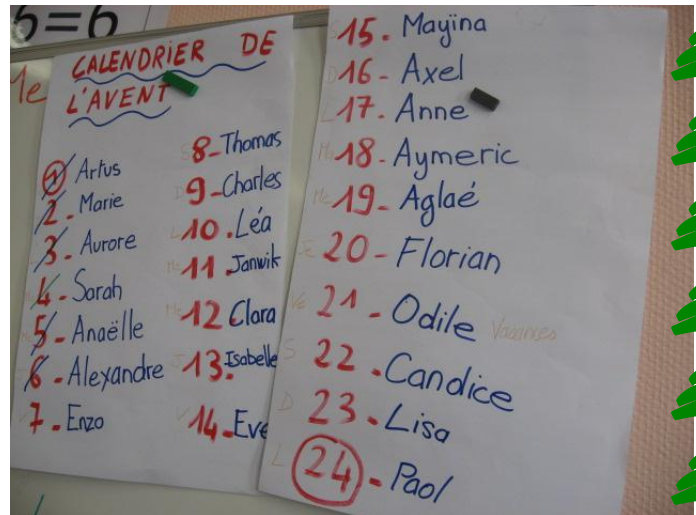 6=6
1e
CALENDRIER DE
L'AVENT
1 Artus
2 - Marie
3 - Aurore
4 - Sarah
5 - Anaëlle
6 - Alexandre
7 - Enzo
8 - Thomas
9 - Charles
10 . Léa
11 . Janwik
12 . Clara
13 . Isabelle
14 - Eve
15 - Mayïna
16 - Axel
17 - Anne
18 - Aymeric
19 - Aglaé
20 - Florian
21 - Odile Vacances
22 - Candice
23 - Lisa
24 - Paol